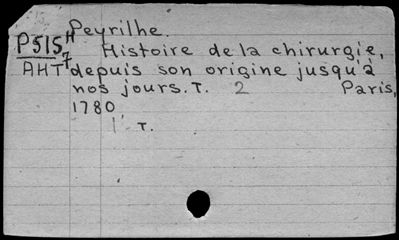 Peyrilhe.
P515H7
Histoire de la chirurgie,
AHT depuis son origine jusqu'à
nos jours. T. 2 Paris,
1780
1 T.